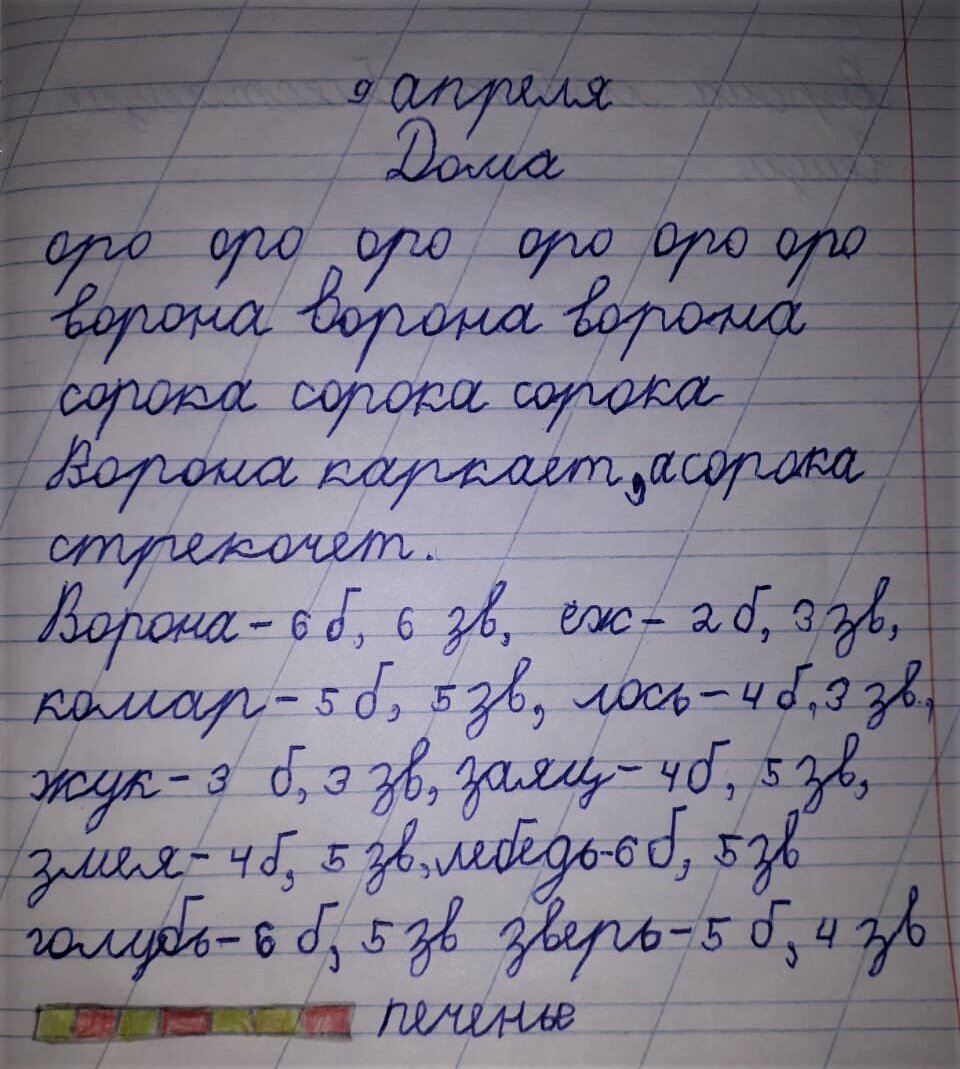 9 апреля
Дома
оро оро оро оро оро оро
ворона ворона ворона
сорока сорока сорока
Ворона каркает, а сорока
стрекочет.
Ворона - 6 б, 6 зв, ёж - 2 б, 3 зв,
комар - 5 б, 5 зв, лось - 4 б, 3 зв.,
жук - 3 б, 3 зв, заяц - 4 б, 5 зв,
змея - 4 б, 5 зв, лебедь - 6 б, 5 зв
голубь - 6 б, 5 зв зверь - 5 б, 4 зв
печенье